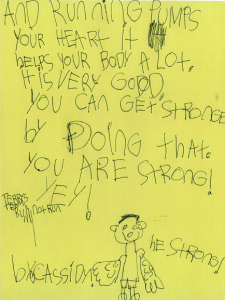 AND RUNNING PUMPS
YOUR HEART it
hELPS YOUR BODY A LOT.
it iS VERY GOOD.
YOU CAN GET STRONGE
by DOiNG thAt.
YOU ARE STRONG!
TERRYS
RUN
YEY!
hE STRONG!
by CASSiDY